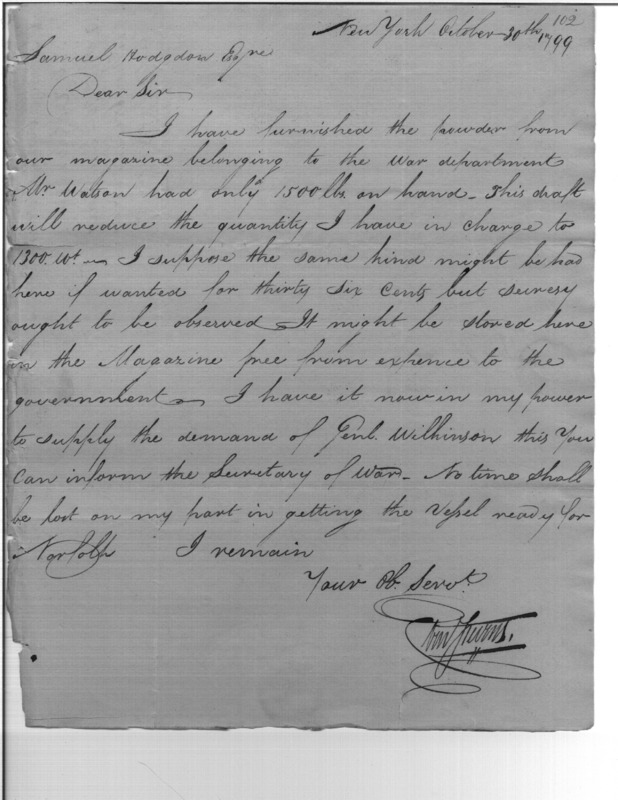 102
New York October 30th 1799
Samuel Hodgdon Esqre
Dear Sir
I have furnished the powder from
our magazine belonging to the War department
Mr Watson had only 1500 lbs. on hand - This draft
will reduce the quantity I have in charge to
1300. Wt. - I suppose the same kind might be had
here if wanted for thirty six Cents but secresy
ought to be observed It might be stored here
in the Magazine free from expence to the
government - I have it now in my power
to supply the demand of Genl. Wilkinson this You
Can inform the Secretary of War - No time shall
be lost on my part in getting the Vessel ready for
Norfolk I remain
Your Ob. Servt.